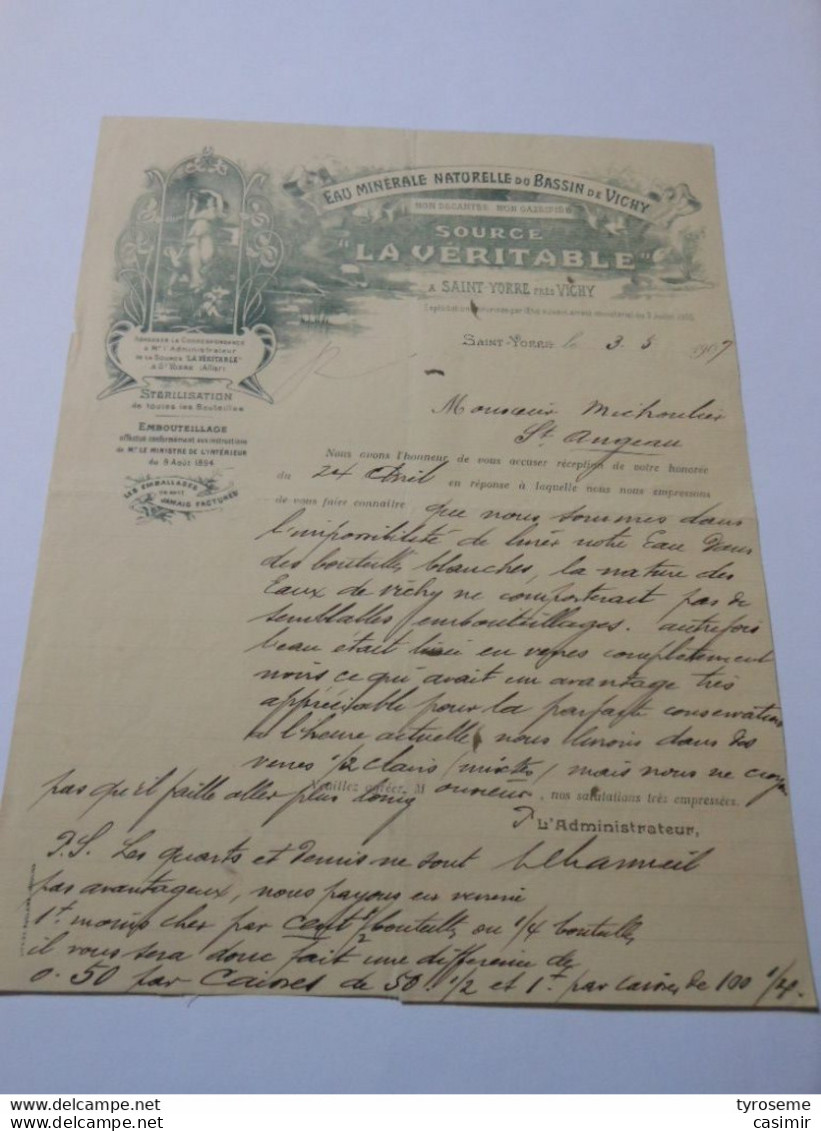 EAU MINÉRALE NATURELLE DU BASSIN DE VICHY
NON DÉCANTÉE NON GAZÉIFIÉE
SOURCE
"LA VÉRITABLE"
A SAINT-YORRE PRÈS VICHY
ADRESSER LA CORRESPONDANCE
A Mr L'ADMINISTRATEUR
DE LA SOURCE "LA VÉRITABLE"
A St YORRE (Allier)
STÉRILISATION
de toutes les Bouteilles
EMBOUTEILLAGE
effectué conformément aux instructions
de Mr LE MINISTRE DE L'INTÉRIEUR
du 9 Août 1894
LES EMBALLAGES
NE SONT
JAMAIS FACTURÉS
SAINT-YORRE le 3. 5 1907
Monsieur Michoulier
St Angeau
Nous avons l'honneur de vous accuser réception de votre honorée
du 24 Avril en réponse à laquelle nous nous empressons
de vous faire connaître que nous sommes dans
l'impossibilité de livrer notre Eau dans
des bouteilles blanches, la nature des
Eaux de Vichy ne comporterait pas de
semblables embouteillages. autrefois
l'eau était livrée en verres complètement
noirs ce qui avait un avantage très
appréciable pour la parfaite conservation
à l'heure actuelle nous livrons dans des
verres 1/2 clairs (mixtes) mais nous ne croyons
pas qu'il faille aller plus loin
Veuillez agréer, Monsieur, nos salutations très empressées.
P L'Administrateur,
P.S. Les quarts et demis ne sont
pas avantageux, nous payons en verrerie
1f moins cher par cent 1/2 bouteilles ou 1/4 bouteilles
il vous sera donc fait une différence de
0.50 par Caisses de 50. 1/2 et 1f par caisses de 100 1/4.
tyroseme
casimir
www.delcampe.net